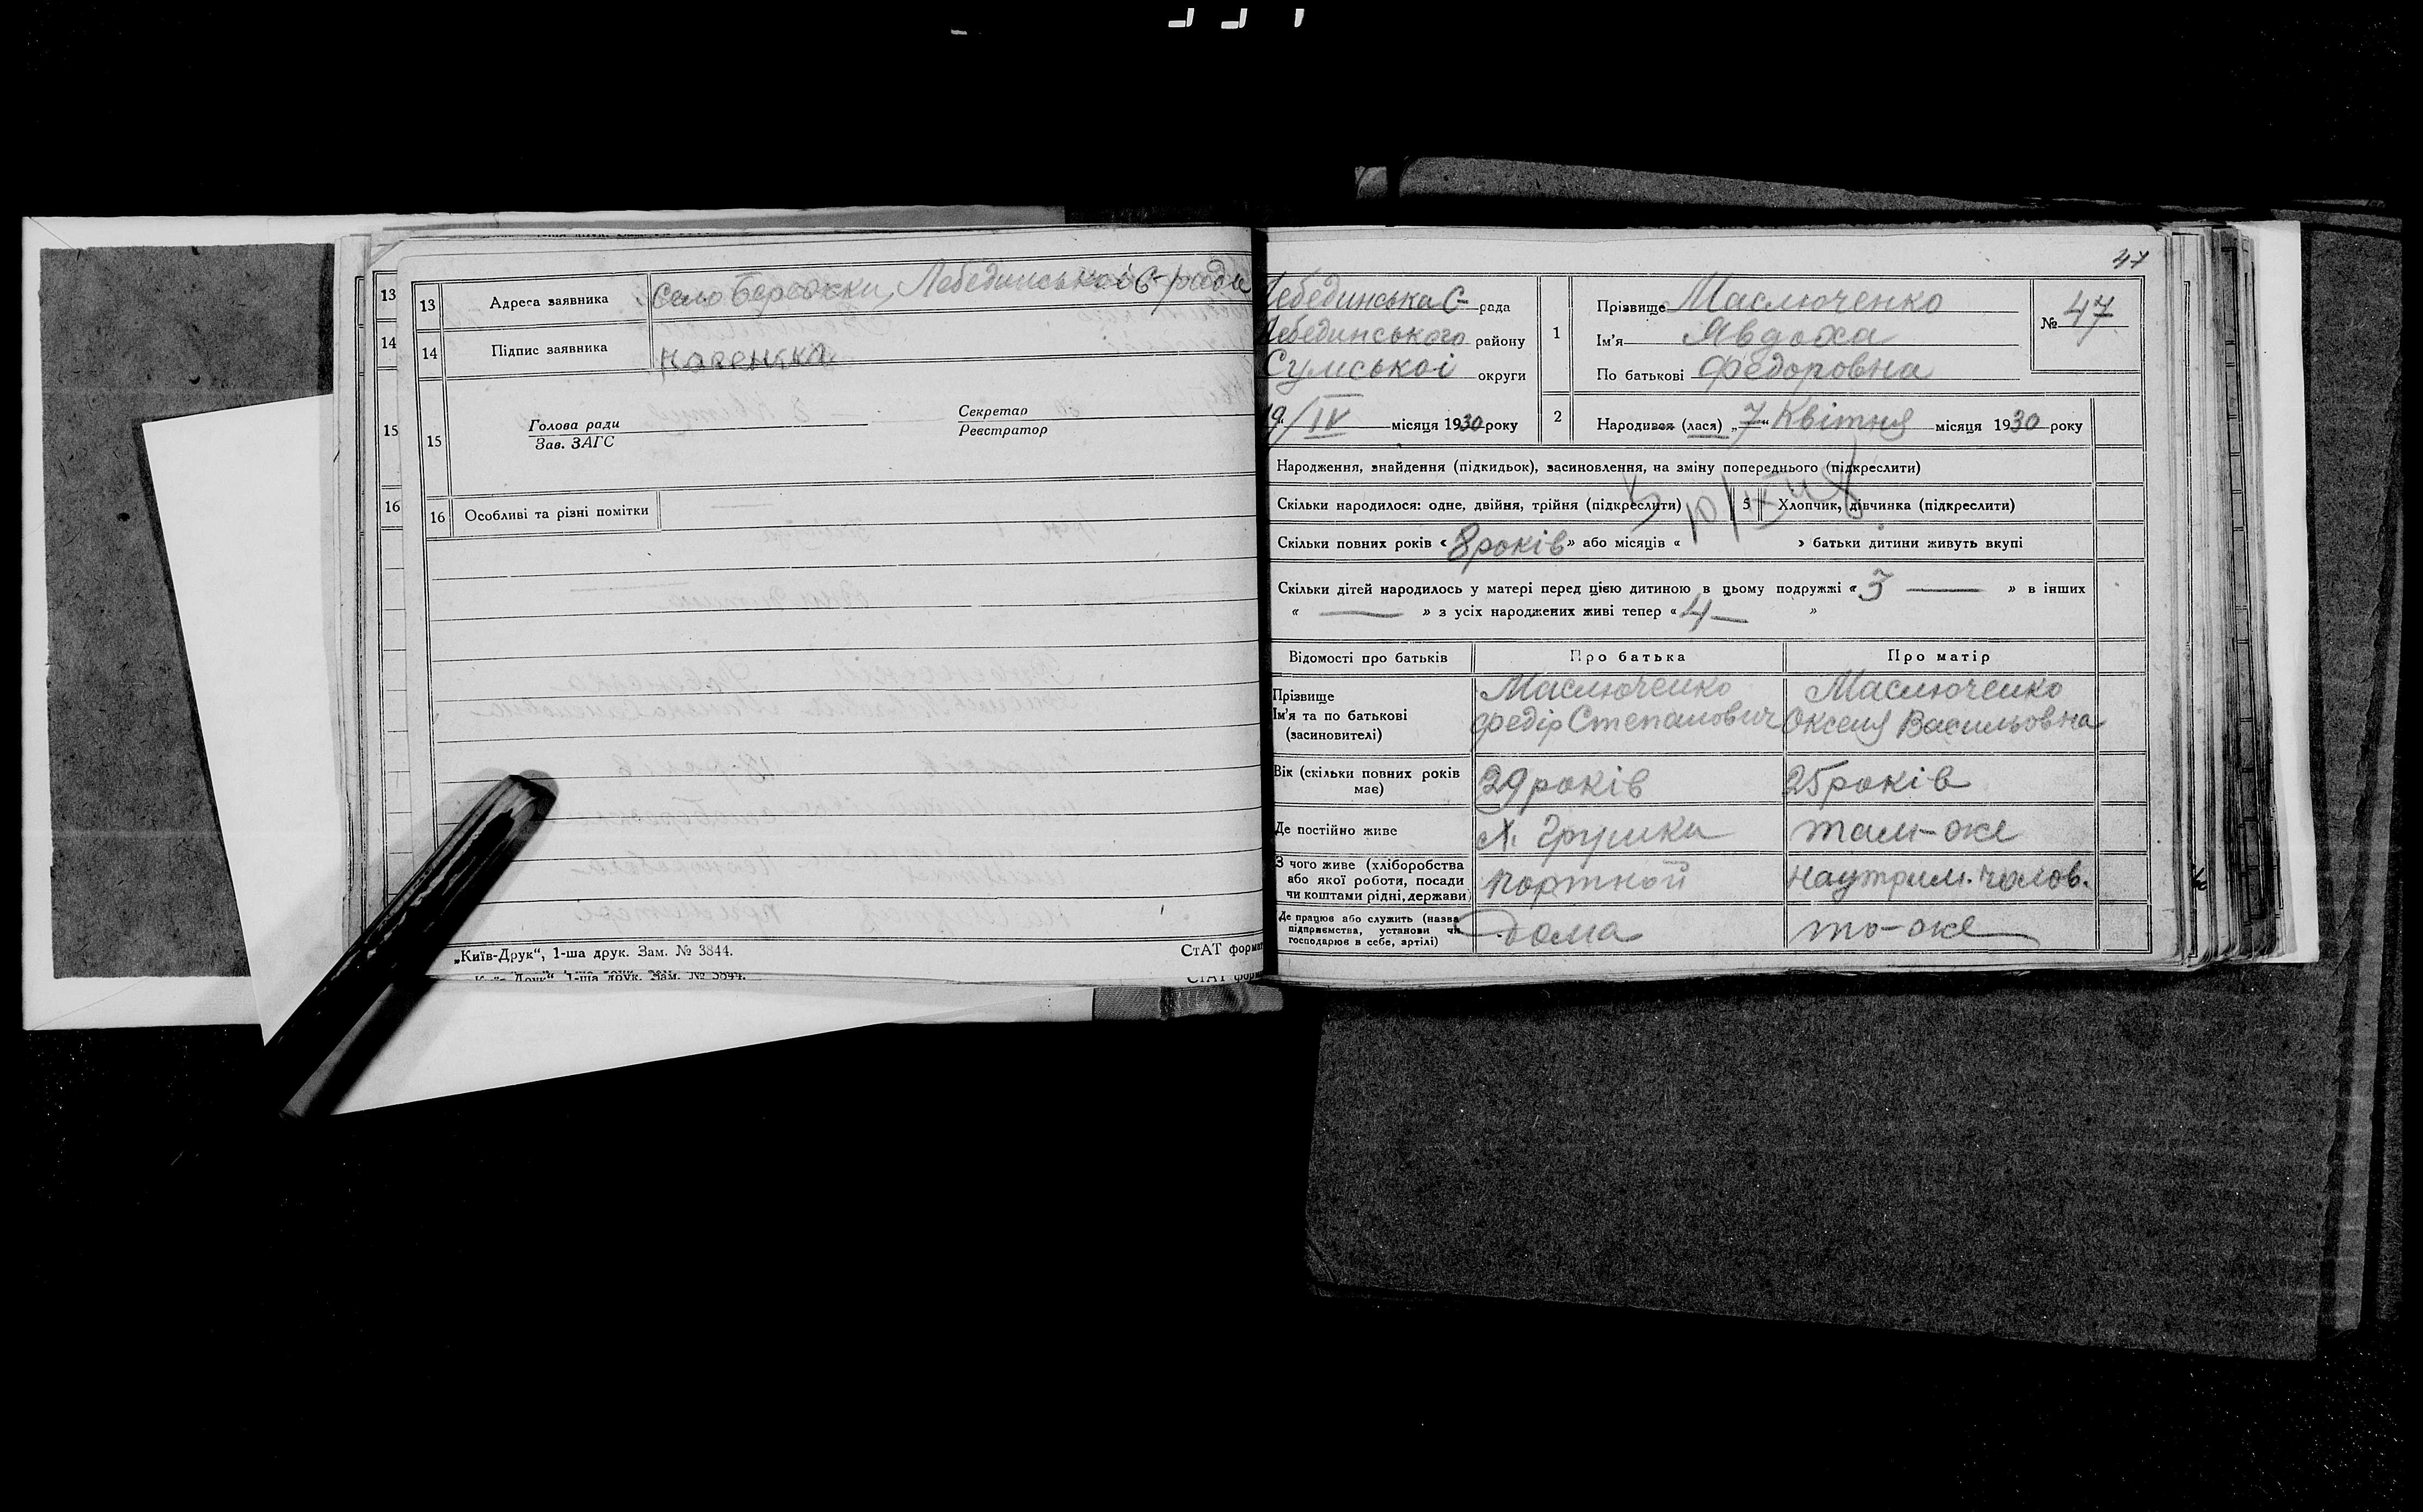 13
14
15
16
13 Адреса заявника село Бережки, Лебединської С-/ради
14 Підпис заявника Носенкка
15 Голова ради
Зав. ЗАГС
Секретар
Реєстратор
16 Особливі та різні помітки
„Київ-Друк“, 1-ша друк. Зам. № 3844.
СтАТ формат
47
Лебединська С- рада
Лебединського району
Сумської округи
19/IV місяця 1930 року
1 Прізвище Маслюченко
Ім'я Явдоха
По батькові Федоровна
№ 47
2 Народився (лася) „7“ Квітня місяця 1930 року
Народження, знайдення (підкидьок), васиновлення, на зміну попереднього (підкреслити)
Скільки народилося: одне, двійня, трійня (підкреслити) 5 Хлопчик, дівчинка (підкреслити)
Скільки повних років «8 років» або місяців « » батьки дитини живуть вкупі
Скільки дітей народилось у матері перед цією дитиною в цьому подружжі «3 — » в інших
« — » з усіх народжених живі тепер «4 — »
Відомості про батьків Про батька Про матір
Прізвище Маслюченко Маслюченко
Ім'я та по батькові Федір Степанович Оксеня Васильовна
(засиновителі)
Вік (скільки повних років має) 29 років 25 років
Де постійно живе х. Грушки там-же
З чого живе (хліборобства або якої роботи, посади чи коштами рідні, держави) портной на утрим. чолов.
Де працює або служить (назва підприємства, установи чи господарює в себе, артілі) Дома то-же